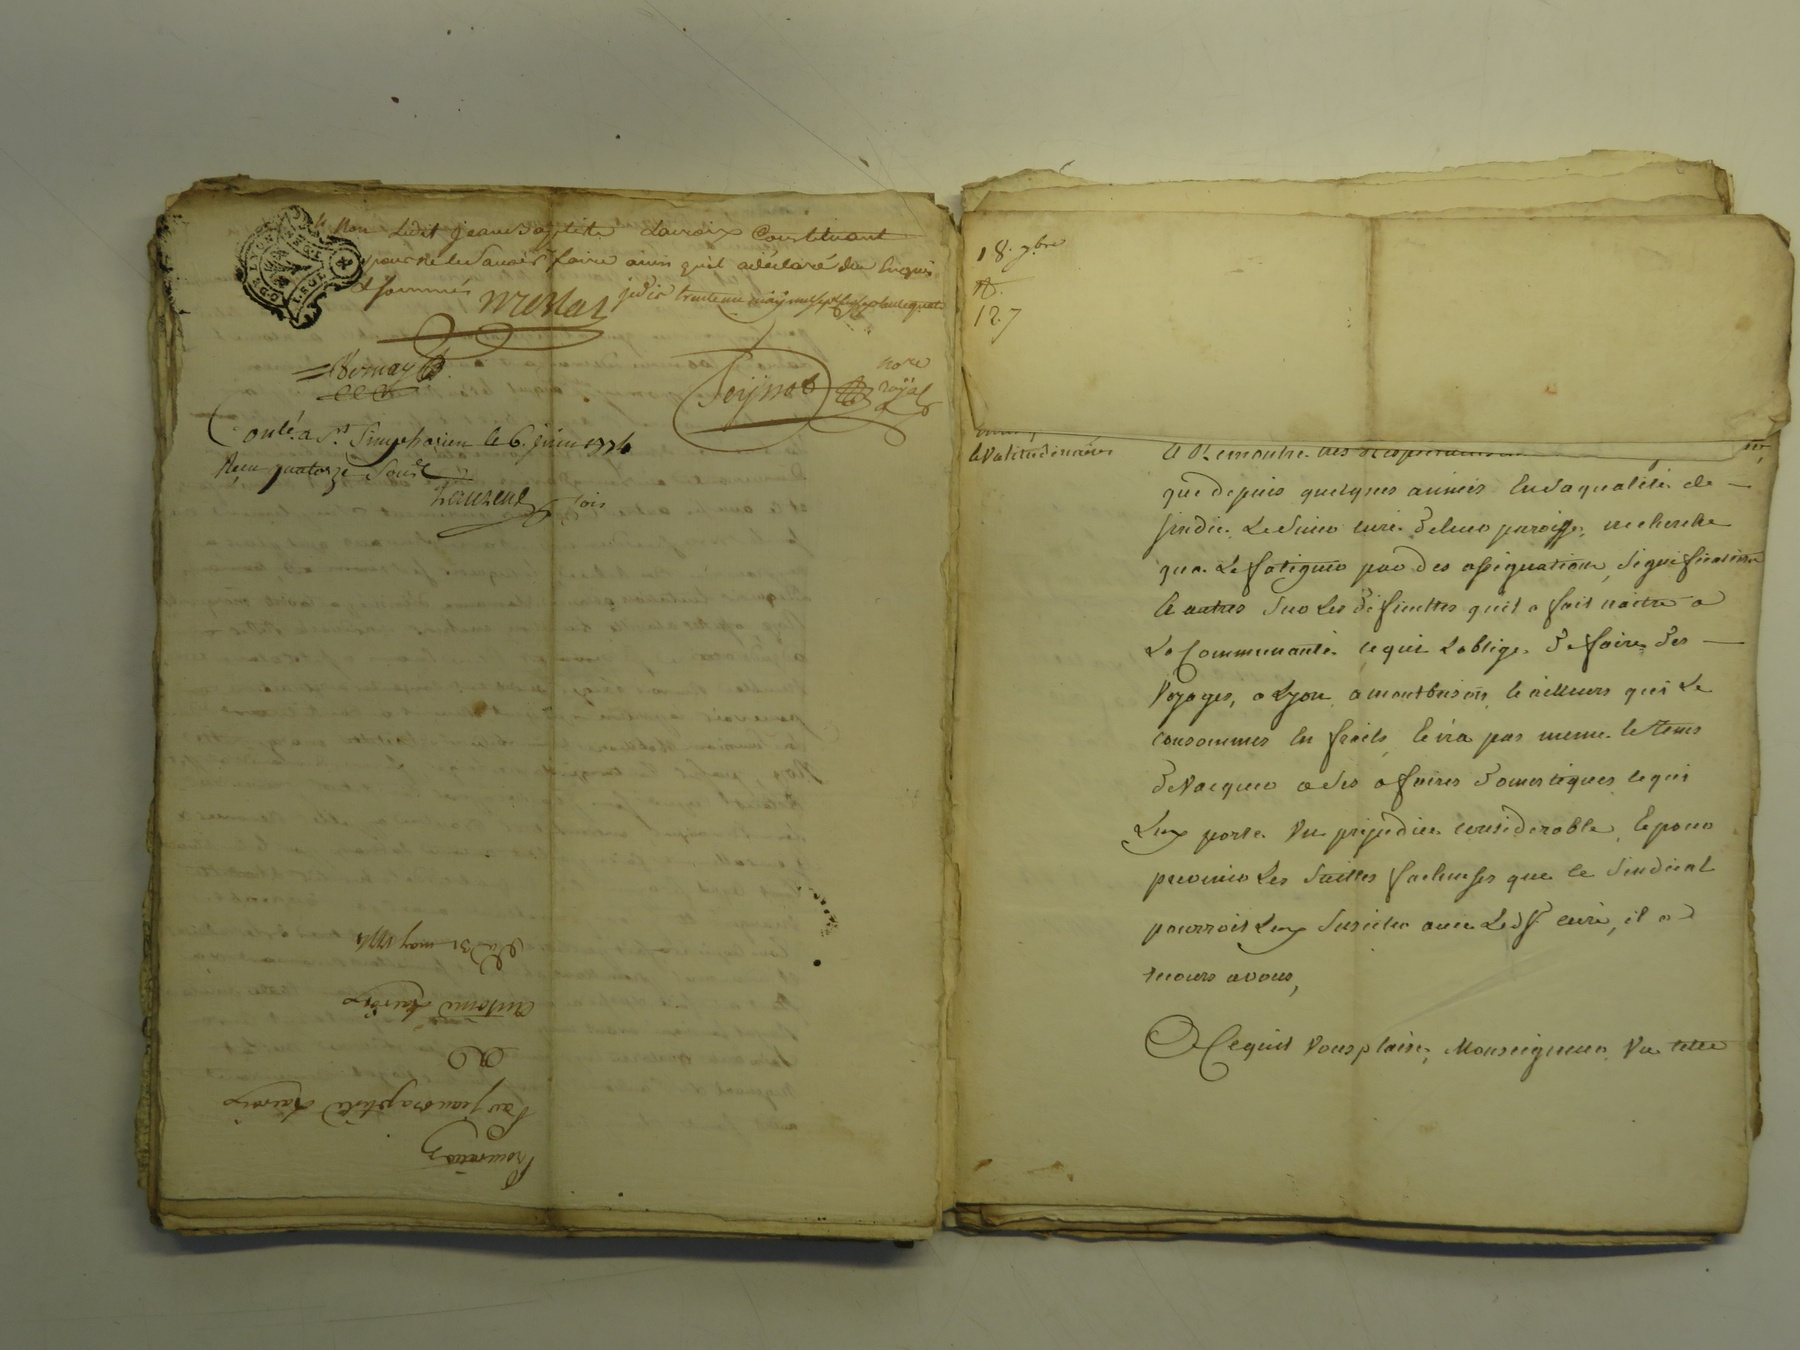 & Non Ledit jean Baptiste Lacroix Constituant
pour ne le Savoir faire ainsi quil a déclaré de Enquis
& Sommé
jeudis trente un maÿ mil sept cent soixante quatorze
Merlat
Bernay
Peÿssot nore roÿal
Conlé a St Simphorien le 6. juin 1774
Reçu quatorze Sous
Laurent
fois
Du 31 may 1774
antoine Lacroix
a
Par jean Baptiste Lacroix
Procuration
18. 9bre
N.
127
levalitudinaire
A Remontre tres
que depuis quelques années En Sa qualité de
sindic. Le Sieur curé de leur paroisse, ne cherche
qua Le fatiguer par des assignations, significations
& autres Sur Les difficultes quil a fait naitre a
La Communauté ce qui Loblige de faire des
Voyages, a Lyon, a montbrison, & ailleurs qui Le
consommes En fraits, & n'a pas meme le tems
de Vacquer a Ses afaires domestiques, ce qui
Luy porte Vn prejudice considerable, & pour
prevenir Les Suittes facheuses que ce Sindicat
pourroit Luy Susciter avec Led Sr curé, il a
recours a vous,
A Ce quil Vous plaise, Monseigneur, Vu cette